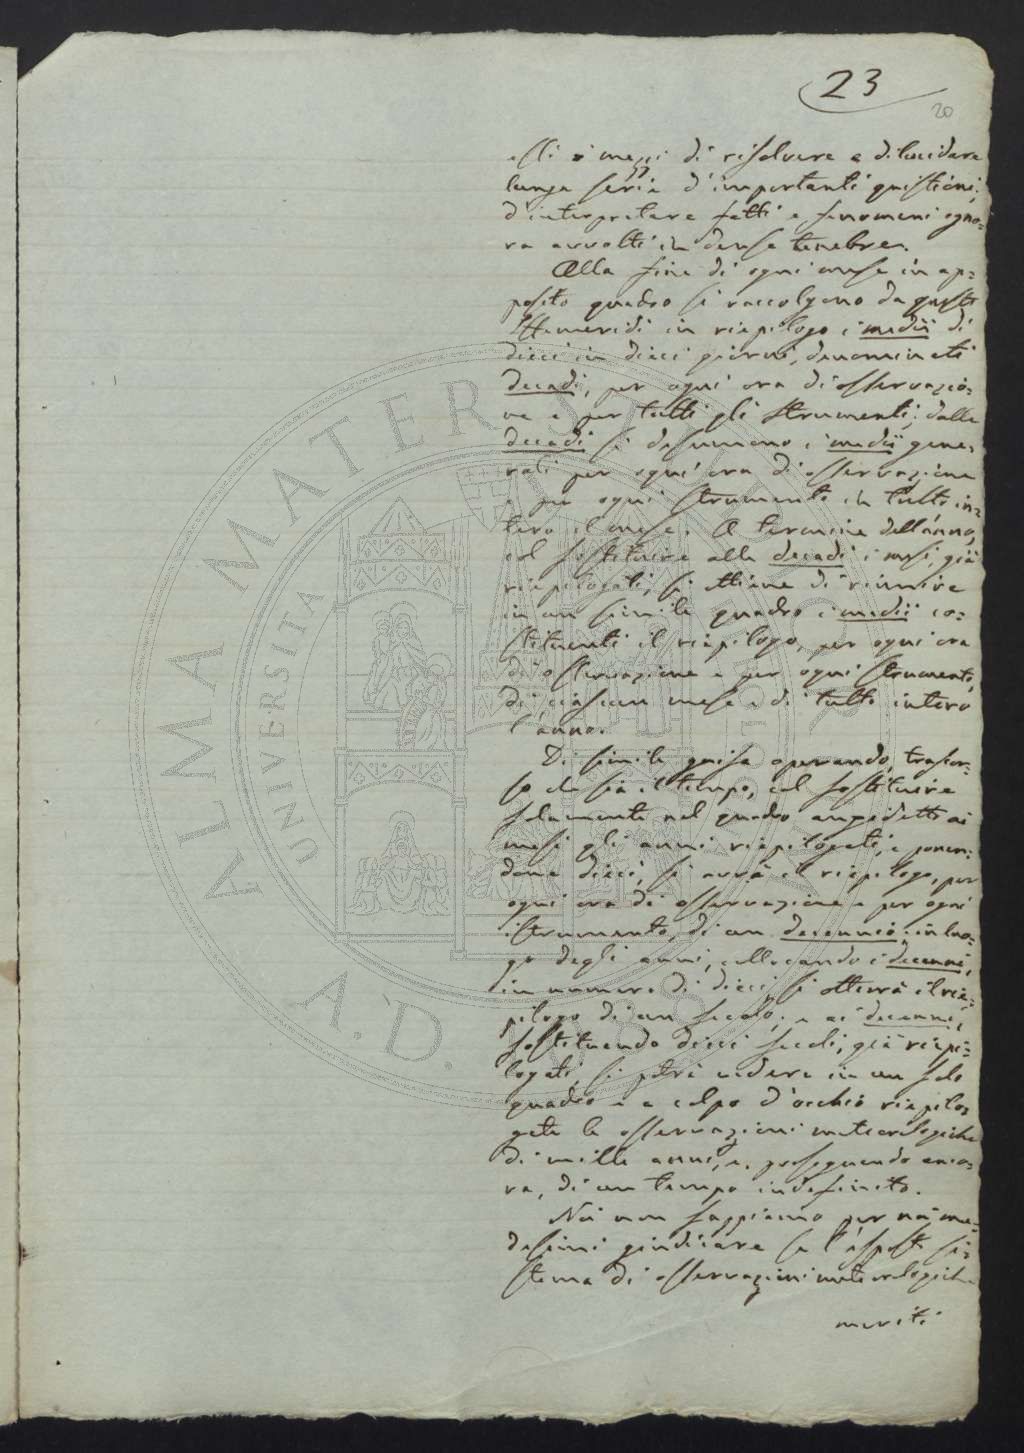 23
20
essi i mezzi di risolvere e dilucidare
lunga serie d'importanti quistioni;
d'interpretare fatti e fenomeni ogno=
ra avvolti in dense tenebre.
Alla fine di ogni mese in ap=
posito quadro si raccolgono da queste
Effemeridi in riepilogo i medii di
dieci in dieci giorni, denominati
decadi, per ogni ora di osservazio=
ne e per tutti gli strumenti; dalle
decadi si desumono i medii gene=
rali per ogni ora di osservazione
e per ogni strumento in tutto in=
tero il mese. A termine dell'anno,
col sostituire alle decadi i mesi, già
riepilogati, si ottiene di riunire
in un simile quadro i medii co=
stituenti il riepilogo, per ogni ora
di osservazione e per ogni strumento,
di ciascun mese e di tutto intero
l'anno.
Di simile guisa operando, trascor=
so che sia il tempo, col sostituire
solamente nel quadro anzidetto ai
mesi gli anni riepilogati, e ponen=
done dieci, si avrà il riepilogo, per
ogni ora di osservazione e per ogni
istrumento, di un decennio; in luo=
go degli anni, collocando i decennii,
in numero di dieci, si otterrà il rie=
pilogo di un secolo; e ai decennii,
sostituendo dieci secoli, già riepi=
logati, si potrà vedere in un solo
quadro e a colpo d'occhio riepilo=
gate le osservazioni meteorologiche
di mille anni, e, proseguendo anco=
ra, di un tempo indefinito.
Noi non sappiamo per noi me=
desimi giudicare se l'esposto si=
stema di osservazioni meteorologiche
meriti
ALMA MATER STUDIORUM
UNIVERSITÀ
A.D. 1088